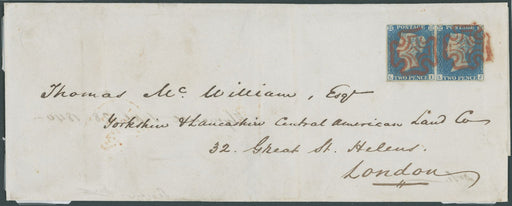 POSTAGE POSTAGE
TWO PENCE TWO PENCE
Thomas Mc. William, Esqr
Yorkshire & Lancashire Central American Land Co
32. Great St. Helens.
London